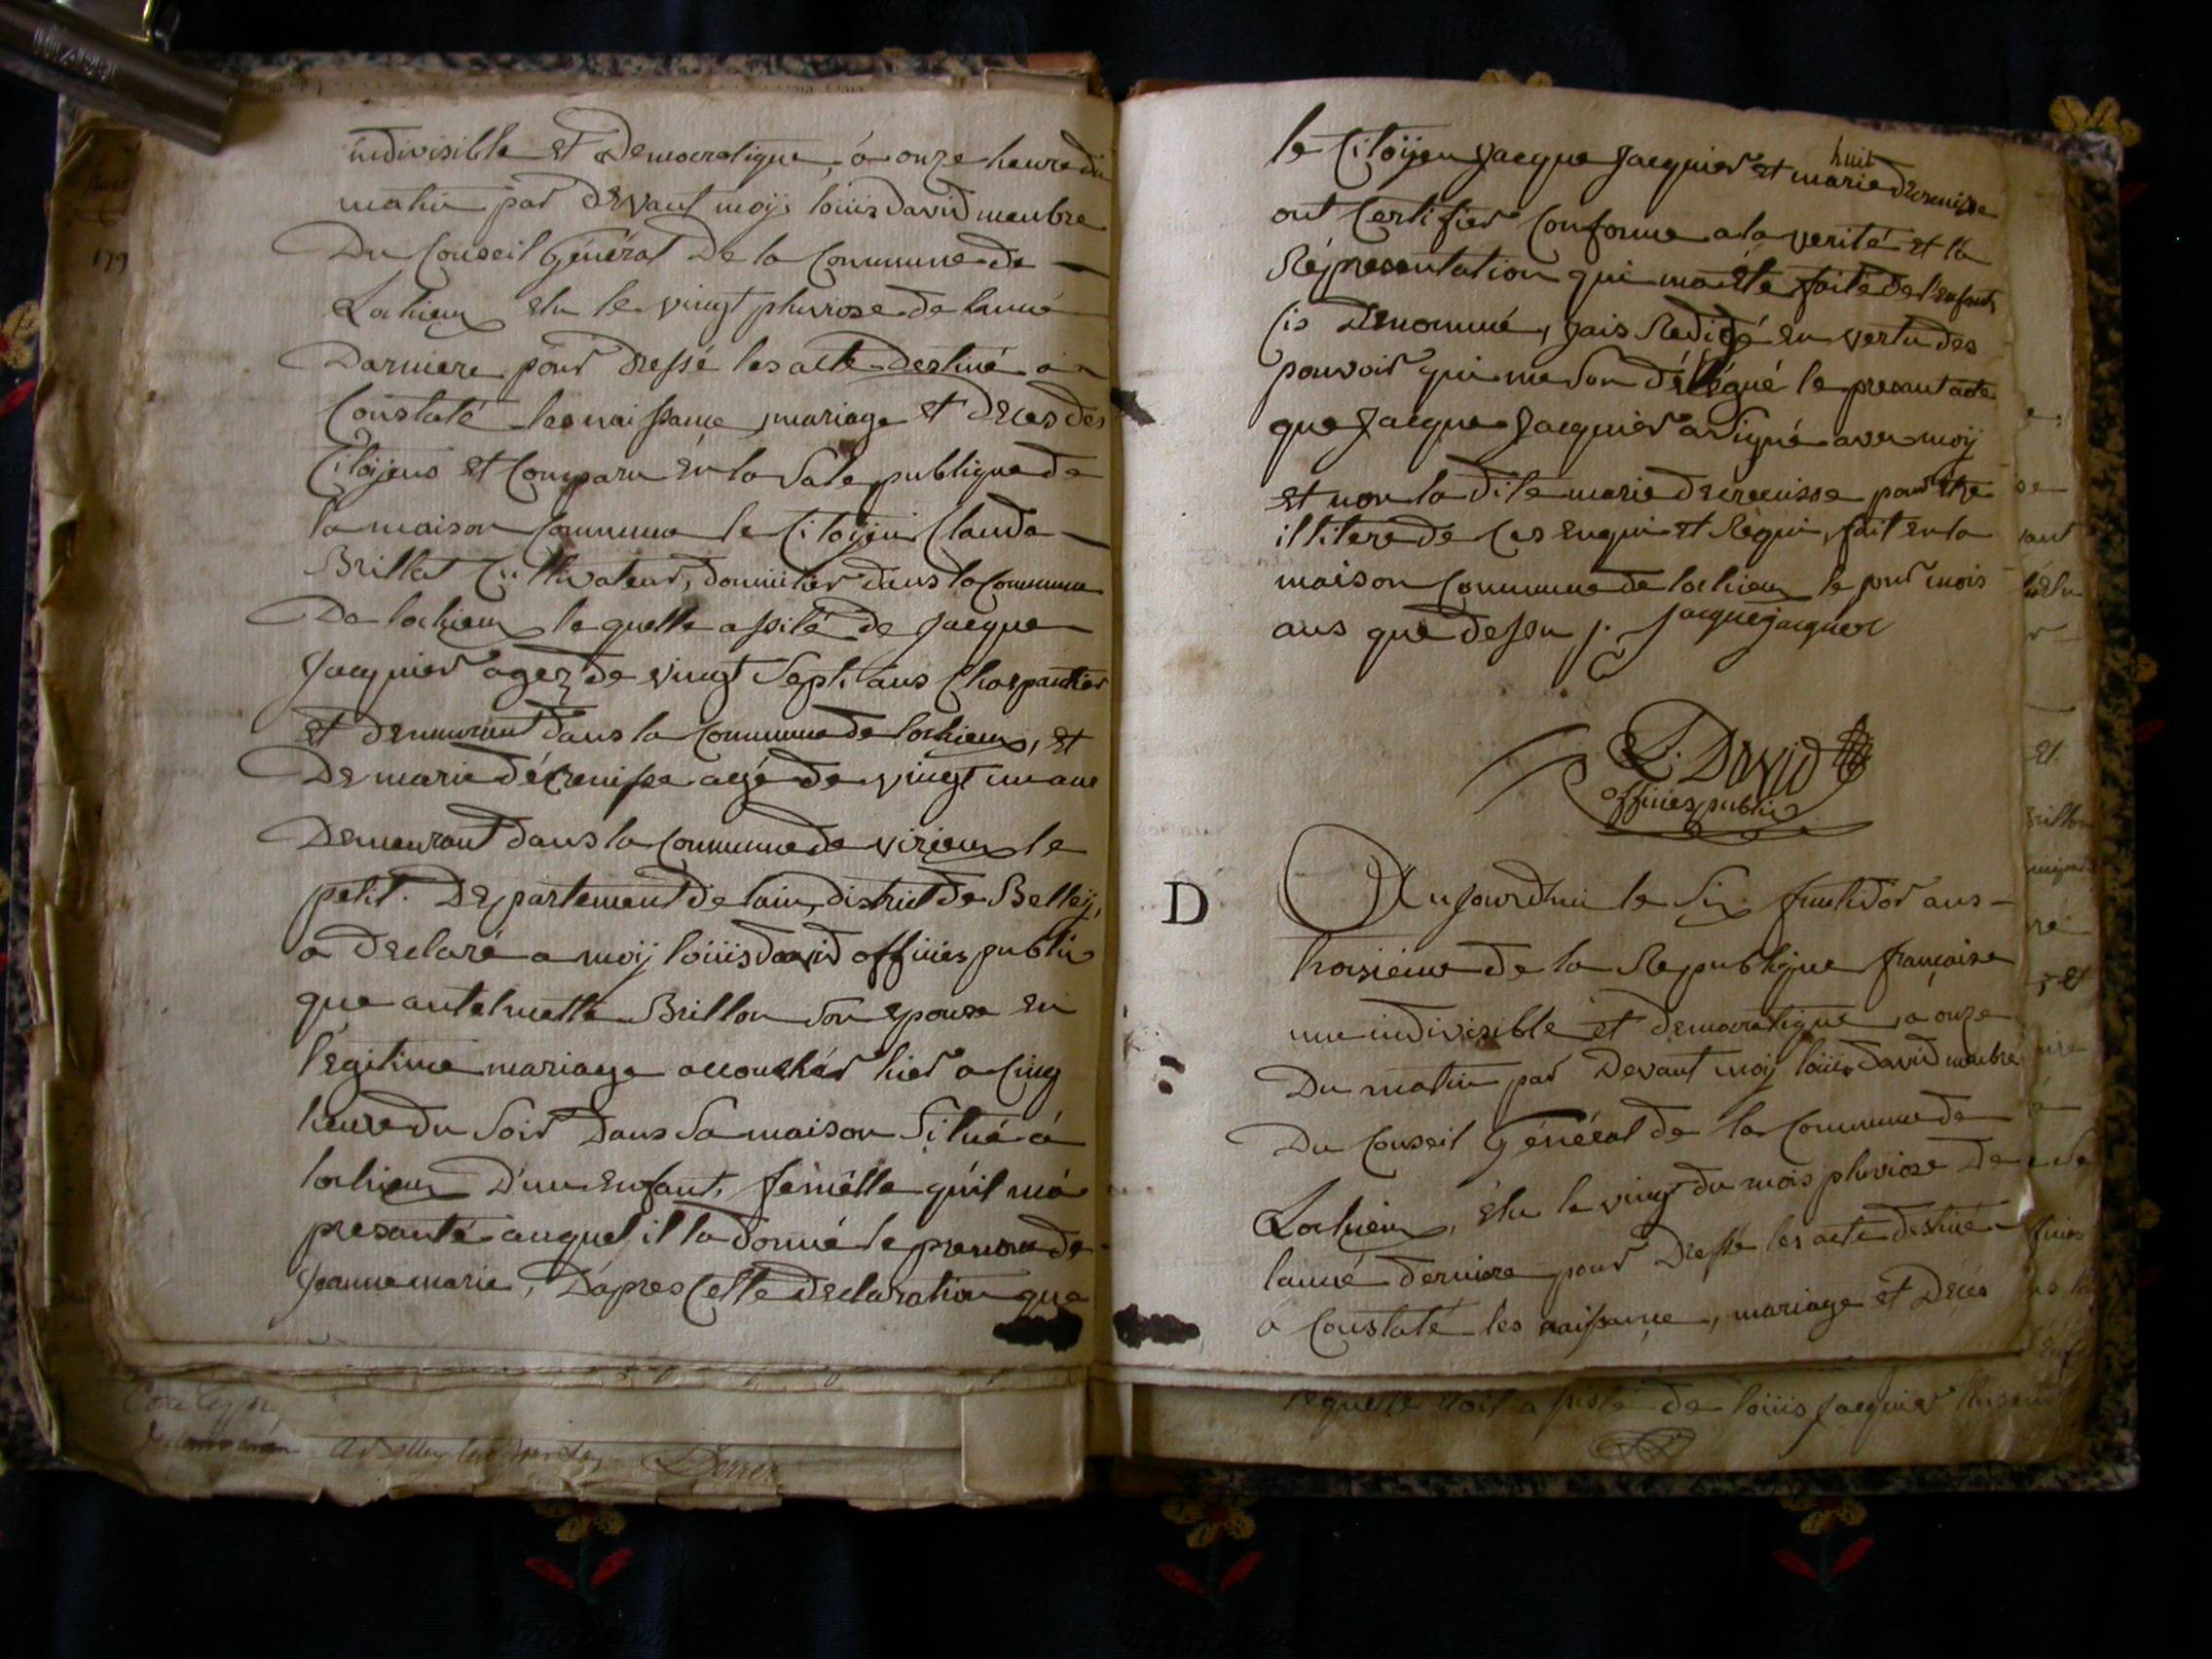 indivisible et Democratique, á onze heure du
matin par devant moÿ loüis david menbre
Du Conseil Général De la Commune de
Lochieu elu le vingt pluviose de lanné
Darniere pour dressé les acte destiné a
Constaté les naissance, mariage et deces des
Citoÿens et Comparu en la Sale publique de
la maison Commune le Citoÿen Claude
Brillat Cultivateur, domicilier dans la Commune
De lochieu le quelle assité de Jacque
Jacquier agez de vingt Sept ans Charpantier
et demeurant dans la Commune de lochieu, et
De marie décrenisse agé de vingt un ans
Demeurant dans la Commune de virieu le
petit. Departement de lain, district de Belleÿ,
a declaré a moÿ loüis david officier public
que antelmette Brillon Son epouse en
légitime mariage accouchér hier a Cinq
heure du Soir Dans Sa maison Situé á
lochieu D'un enfant, fémélle qu'il má
presanté auquel il la donné le prenom de
Jeanne marie, D'apres Cette declaration que
le Citoÿen Jacque Jacquier et marie decrenisse
huit
ont Certifier Conforme a la verité et la
Réprésentation qui ma été faite de l'enfant
Cis Denommé, jais Redigé en vertu des
pouvoir qui me Son délégué le presant acte
que Jacque Jacquier a Signé avec moÿ
et non la dite marie decrenisse pour etre
illitere de Ces enquis et Réquis, fait en la
maison Commune de lochieu le jour mois
ans que dessu /. Jacque jacquier
L. David
officier public
D
Aujourdhui le Six fructidor ans
troisieme de la Republique francaise
une indivisible et democratique, a onze
Du matin par Devant moÿ loüis david menbre
Du Conseil Général de la Commune de
Lochieu, élu le vingt du mois pluviose De
lanné derniere pour Dressé les acte destiné
a Constaté les naissance, mariage et Décés
de loüis Jacquier